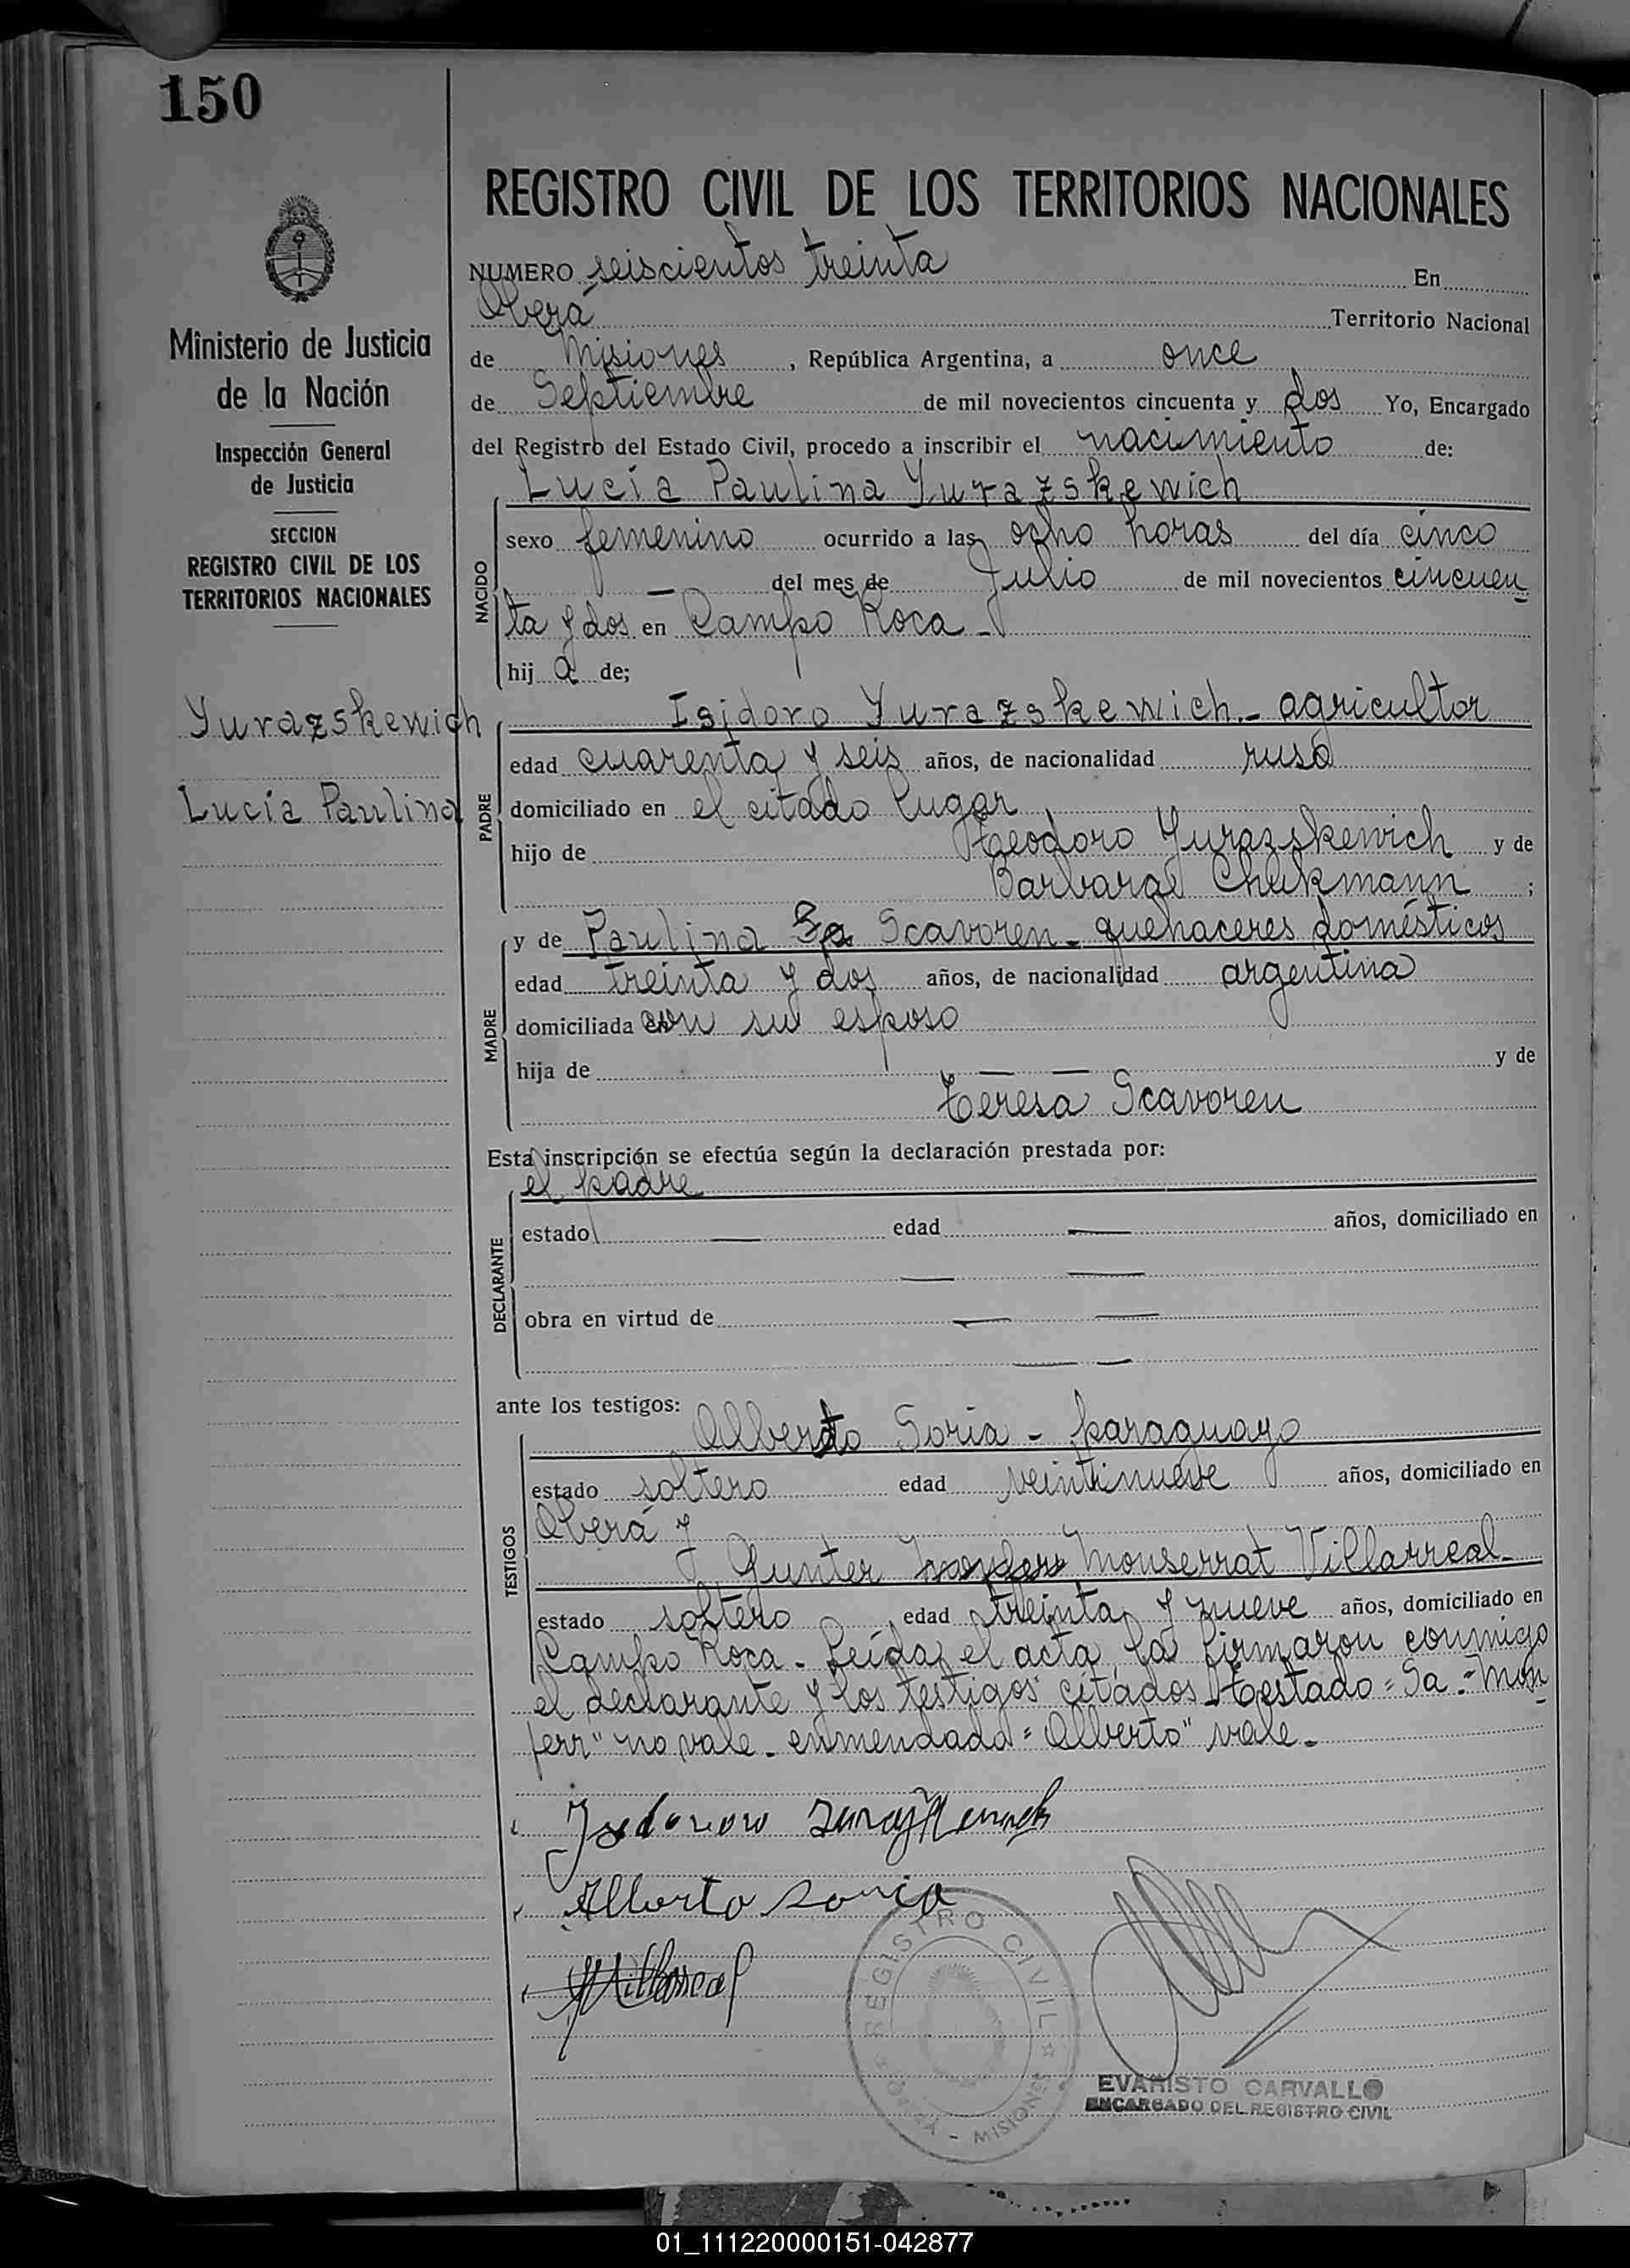 150
REGISTRO CIVIL DE LOS TERRITORIOS NACIONALES
Ministerio de Justicia
de la Nación
Inspección General
de Justicia
SECCION
REGISTRO CIVIL DE LOS
TERRITORIOS NACIONALES
Yurazskewich
Lucía Paulina
NUMERO seiscientos treinta En
Oberá Territorio Nacional
de Misiones, República Argentina, a once
de Septiembre de mil novecientos cincuenta y dos Yo, Encargado
del Registro del Estado Civil, procedo a inscribir el nacimiento de:
Lucía Paulina Yurazskewich
NACIDO
sexo femenino ocurrido a las ocho horas del día cinco
— del mes de Julio de mil novecientos cincuen
ta y dos en Campo Roca.-
hij a de;
PADRE
Isidoro Yurazskewich.- agricultor
edad cuarenta y seis años, de nacionalidad ruso
domiciliado en el citado lugar
hijo de Teodoro Yurazskewich y de
Barbara Chukmann ;
MADRE
y de Paulina Sa Scavoren - quehaceres domésticos
edad treinta y dos años, de nacionalidad argentina
domiciliada con su esposo
hija de — — y de
Teresa Scavoren
Esta inscripción se efectúa según la declaración prestada por:
el padre
DECLARANTE
estado — edad — años, domiciliado en
— —
obra en virtud de — —
— —
ante los testigos:
TESTIGOS
Alberto Soria - paraguayo
estado soltero edad veintinueve años, domiciliado en
Oberá y
Gunter Monserrat Villarreal-
estado soltero edad treinta y nueve años, domiciliado en
Campo Roca.- Leída el acta, la firmaron conmigo
el declarante y los testigos citados Testado = Sa = Mon
ferr" no vale - enmendado = Alberto" vale.-
Alberto Soria
Villarreal
REGISTRO CIVIL
OBERÁ - MISIONES
EVARISTO CARVALLO
ENCARGADO DEL REGISTRO CIVIL
01_111220000151-042877